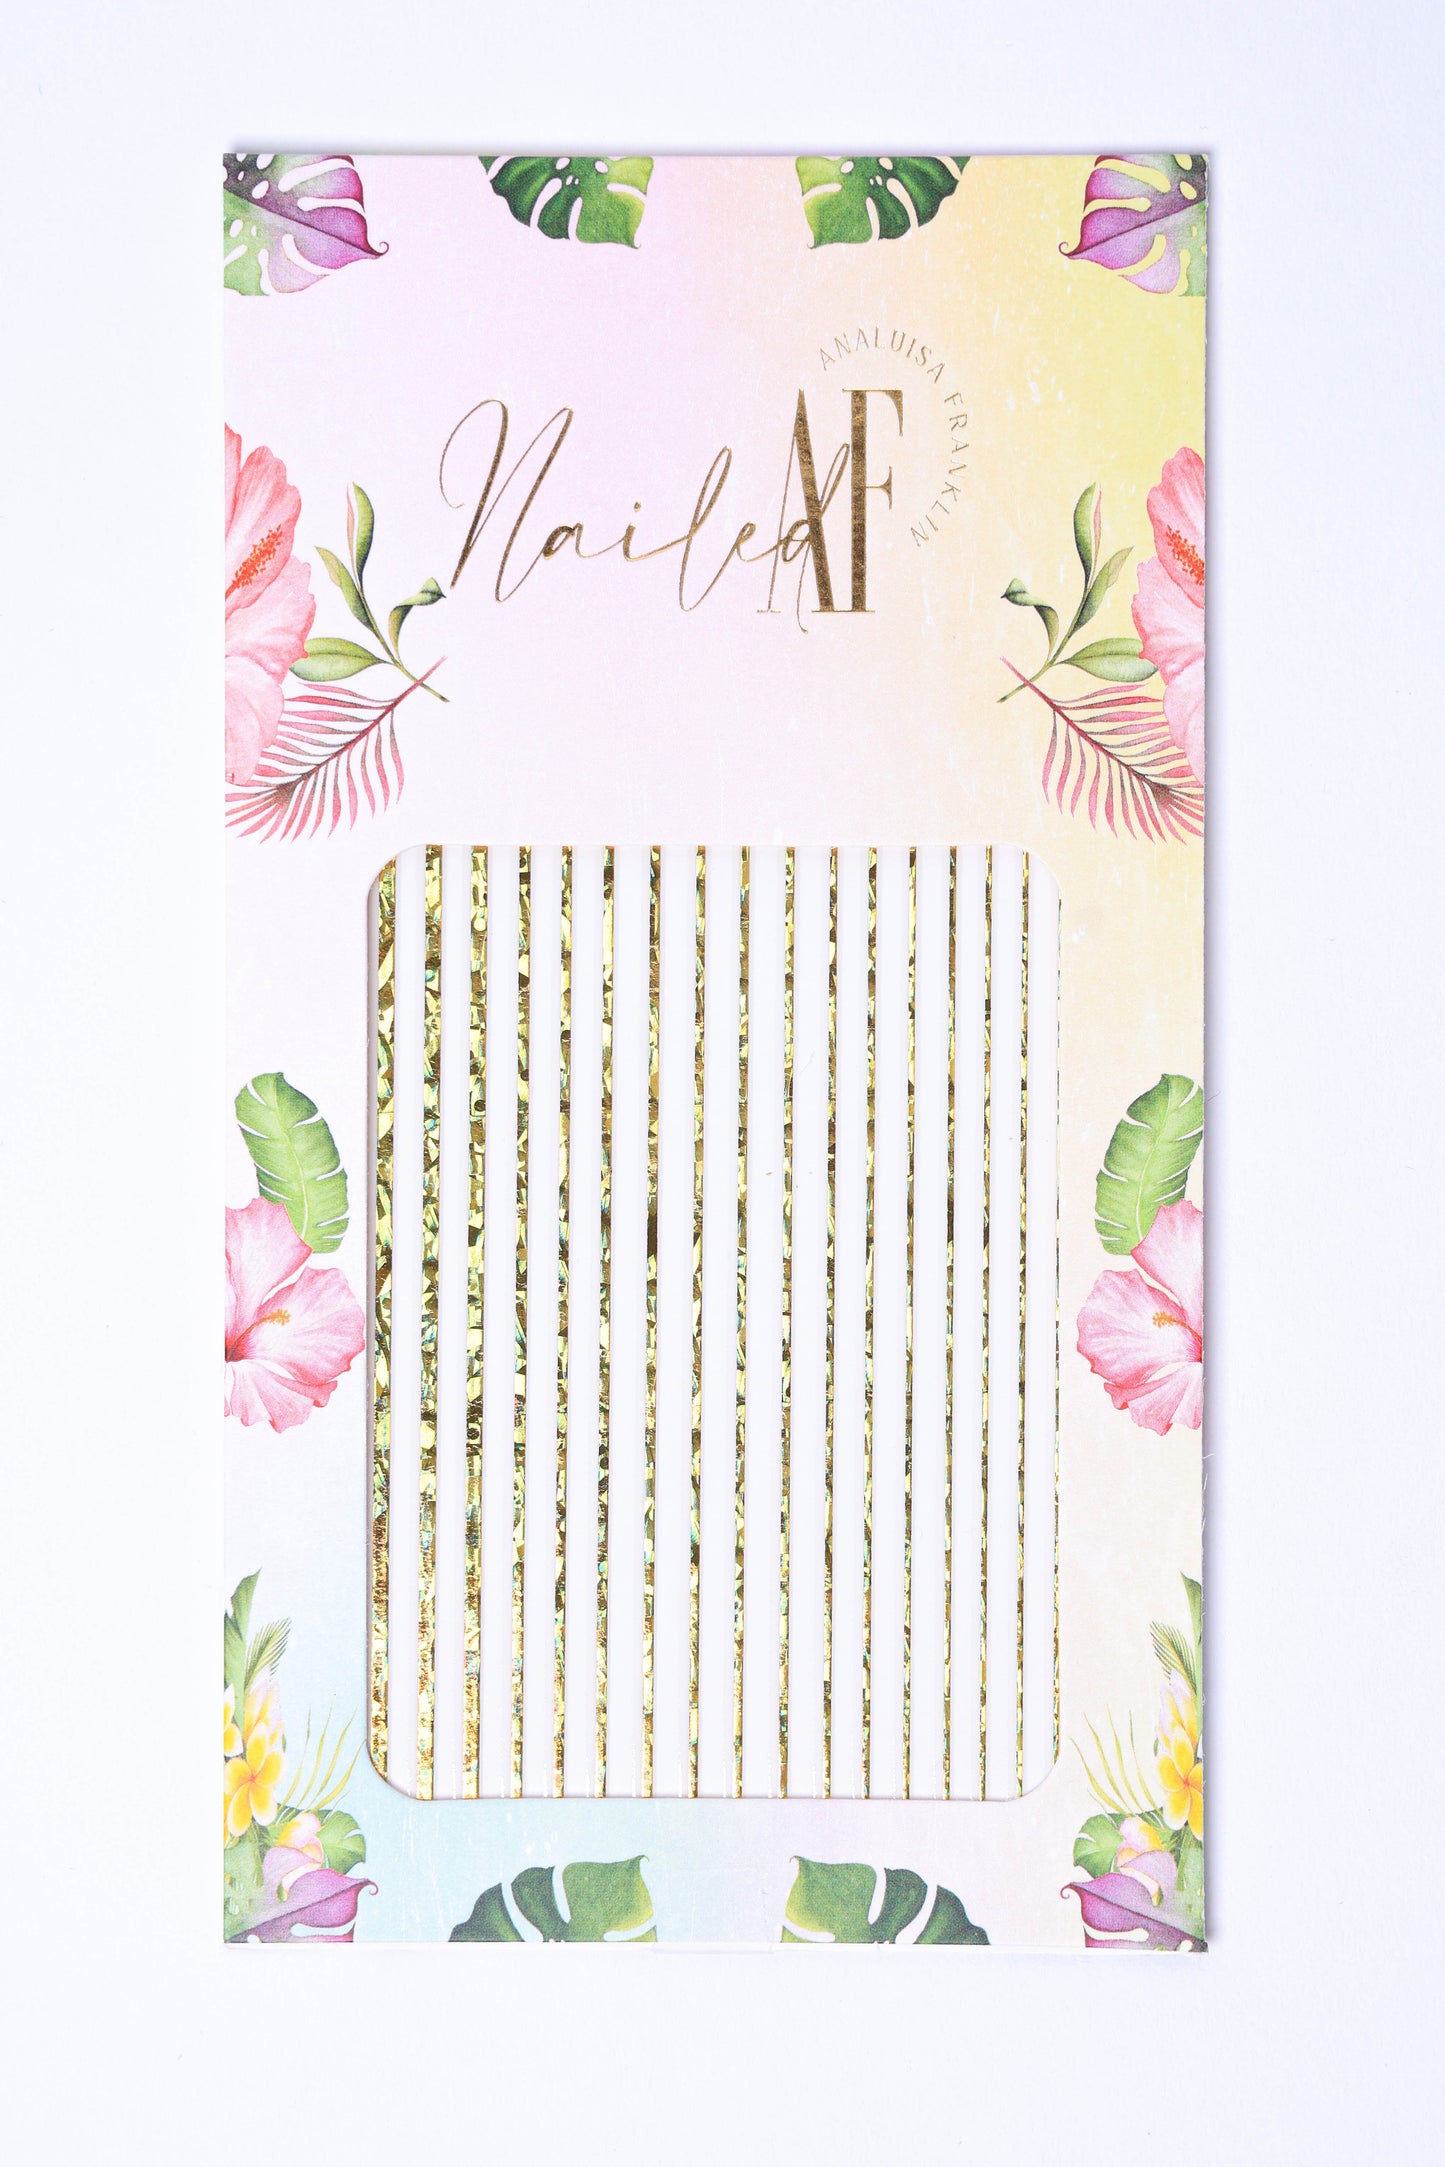 ANALUISA FRANKLIN
Nailed AF